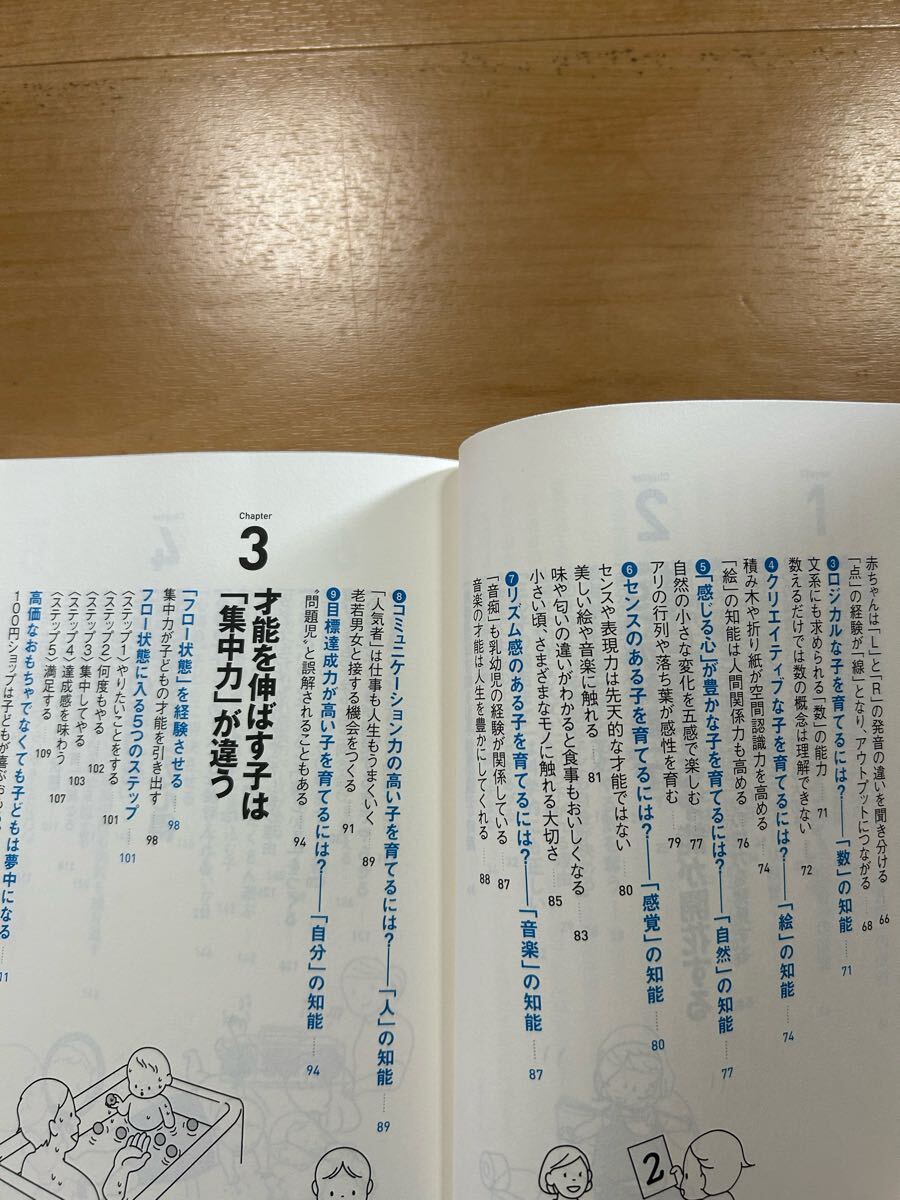 赤ちゃんは「L」と「R」の発音の違いを聞き分ける …… 66
「点」の経験が「線」となり、アウトプットにつながる …… 68
❸ロジカルな子を育てるには？——「数」の知能 …… 71
文系にも求められる「数」の能力 …… 71
数えるだけでは数の概念は理解できない …… 72
❹クリエイティブな子を育てるには？——「絵」の知能 …… 74
積み木や折り紙が空間認識力を高める …… 74
「絵」の知能は人間関係力も高める …… 76
❺「感じる心」が豊かな子を育てるには？——「自然」の知能 …… 77
自然の小さな変化を五感で楽しむ …… 77
アリの行列や落ち葉が感性を育む …… 79
❻センスのある子を育てるには？——「感覚」の知能 …… 80
センスや表現力は先天的な才能ではない …… 80
美しい絵や音楽に触れる …… 81
味や匂いの違いがわかると食事もおいしくなる …… 83
小さい頃、さまざまなモノに触れる大切さ …… 85
❼リズム感のある子を育てるには？——「音楽」の知能 …… 87
「音痴」も乳幼児の経験が関係している …… 87
音楽の才能は人生を豊かにしてくれる …… 88
❽コミュニケーション力の高い子を育てるには？——「人」の知能 …… 89
「人気者」は仕事も人生もうまくいく …… 89
老若男女と接する機会をつくる …… 91
❾目標達成力が高い子を育てるには？——「自分」の知能 …… 94
〝問題児〟と誤解されることもある …… 94
Chapter
3
才能を伸ばす子は
「集中力」が違う
「フロー状態」を経験させる …… 98
集中力が子どもの才能を引き出す …… 98
フロー状態に入る5つのステップ …… 101
〈ステップ1〉やりたいことをする …… 101
〈ステップ2〉何度もやる …… 102
〈ステップ3〉集中してやる …… 103
〈ステップ4〉達成感を味わう …… 107
〈ステップ5〉満足する …… 109
高価なおもちゃでなくても子どもは夢中になる …… 111
100円ショップは子どもが喜ぶ
2